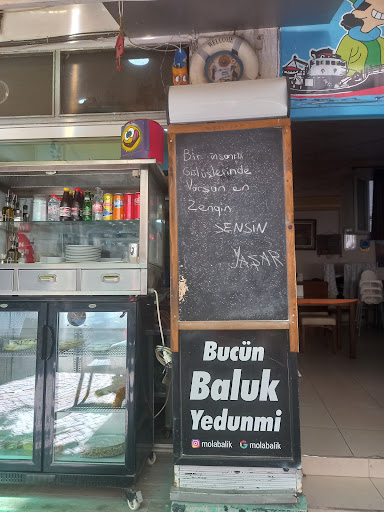 WELCOME
Bir insanın
Gülüşlerinde
Varsan en
Zengin
SENSİN
YAŞAR
Bucün
Baluk
Yedunmi
molabalik
molabalik